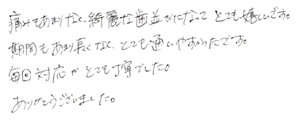 痛みもあまりなく、綺麗な歯並びになって とても嬉しいです。
期間もあまり長くなく、とても通いやすかったです。
毎回対応がとても丁寧でした。
ありがとうございました。